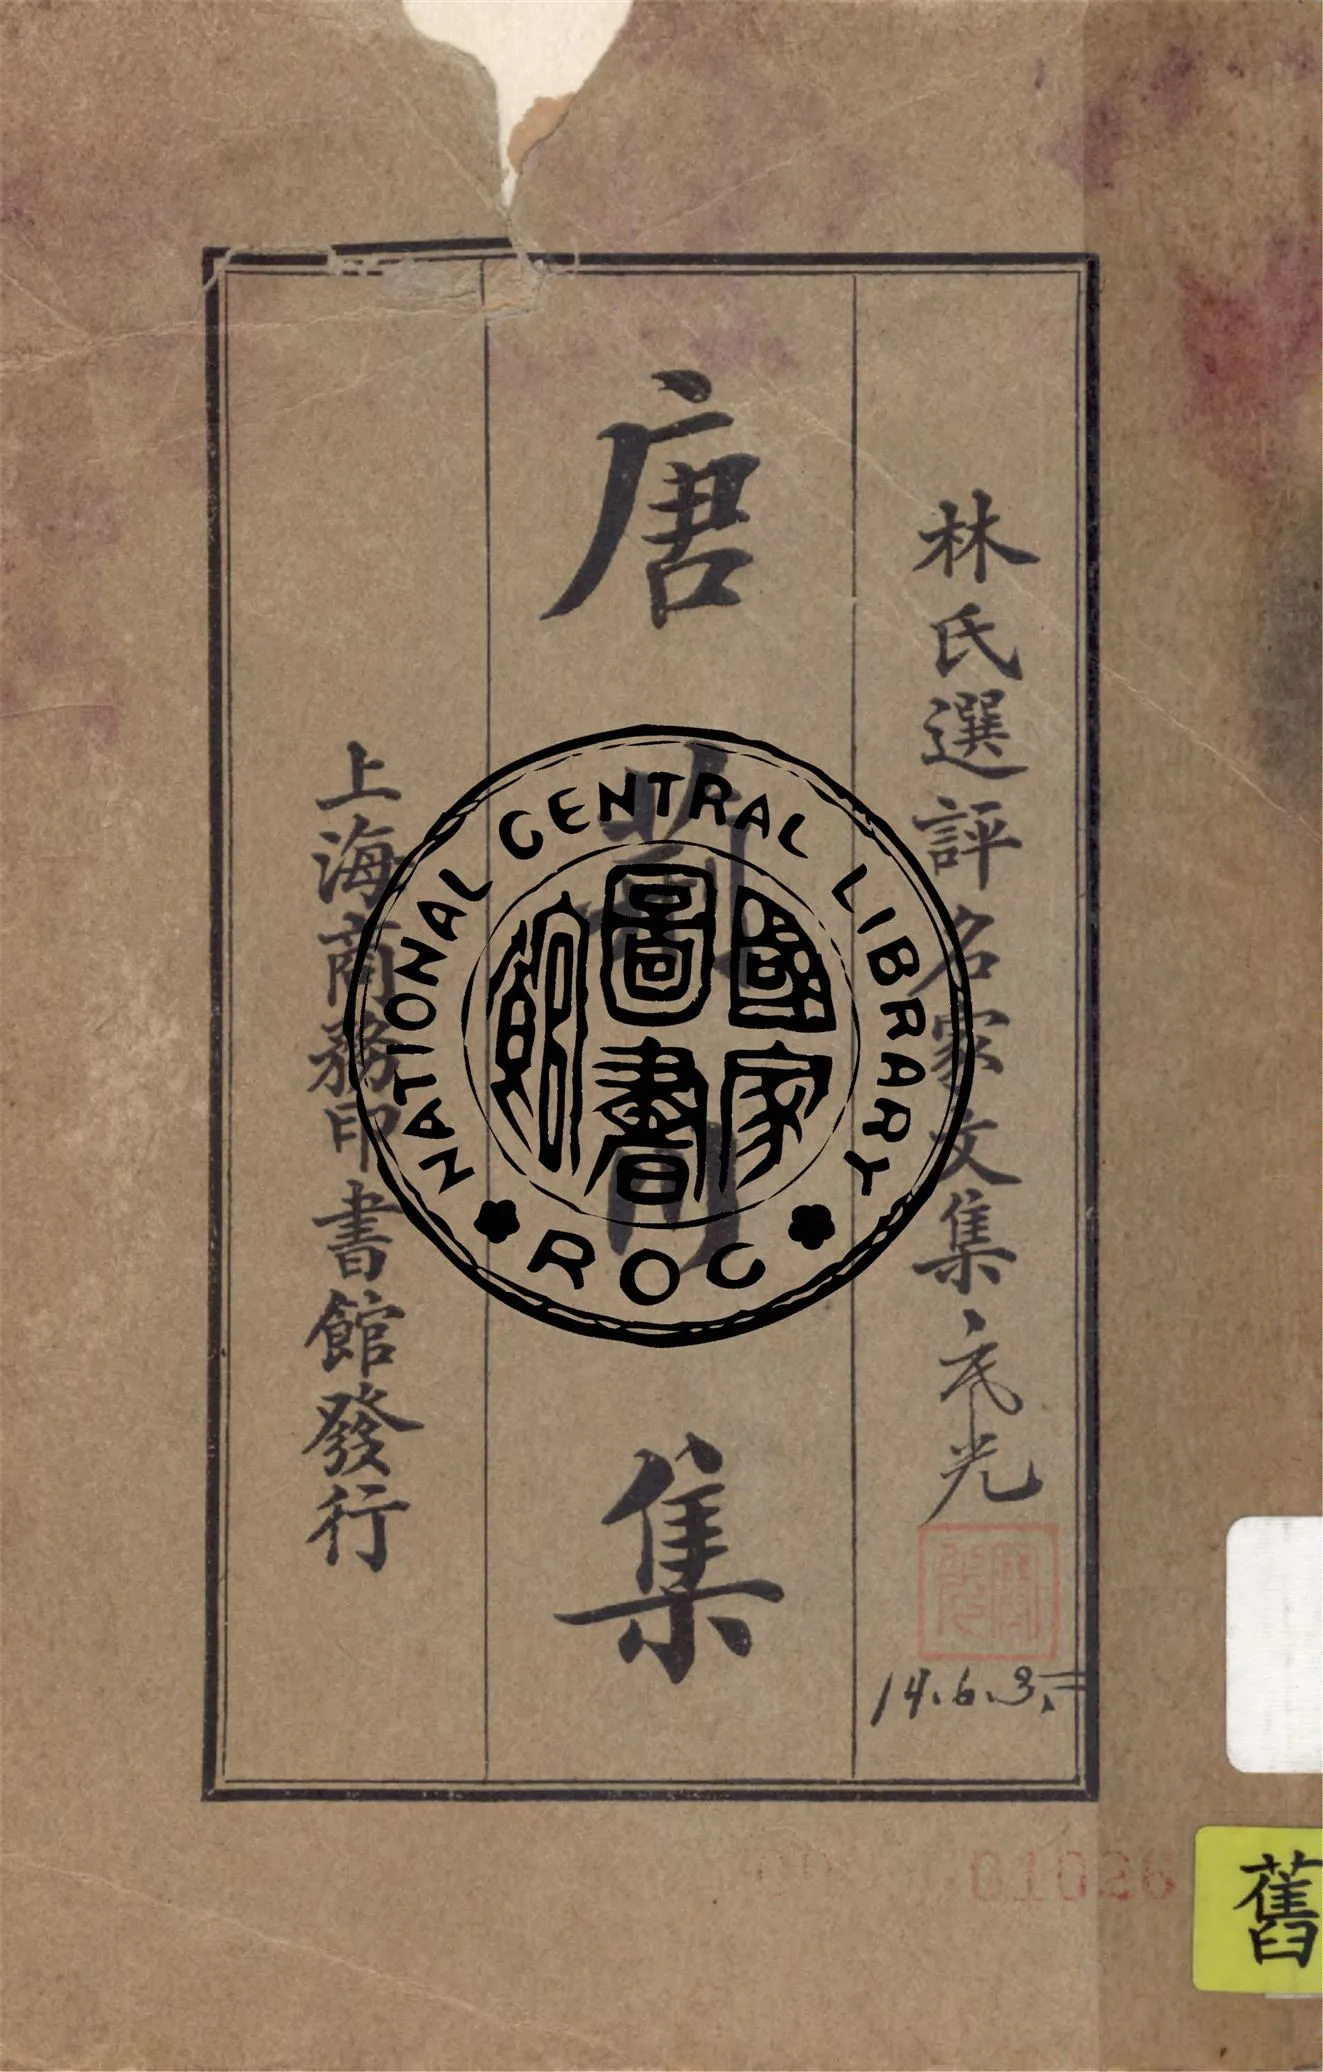 林氏選評名家文集
唐荊川集
上海商務印書館發行
NATIONAL CENTRAL LIBRARY
ROC
國家圖書館
14.6.3.
01026
舊